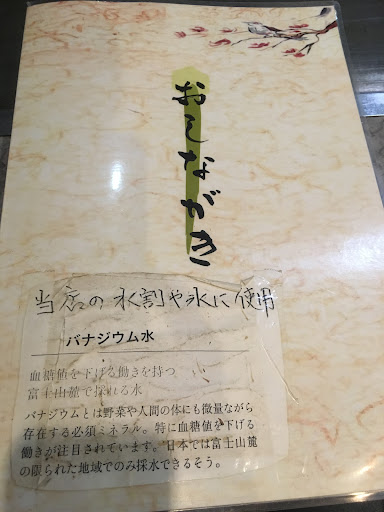 おしながき
当店の水割や氷に使用
バナジウム水
血糖値を下げる働きを持つ
富士山麓で採れる水
バナジウムとは野菜や人間の体にも微量ながら
存在する必須ミネラル。特に血糖値を下げる
働きが注目されています。日本では富士山麓
の限られた地域でのみ採水できるそう。